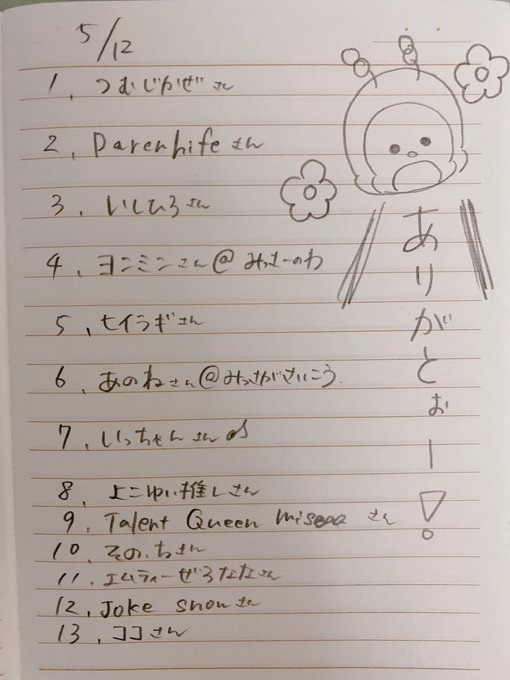 5/12
1、つむじかぜさん
2、Darenhifeさん
3、いしひろさん
4、ヨンミンさん@みっきーのわ
5、セイラギさん
6、あのねさん@みっきがさいこう
7、いっちゃんさん♪
8、よこゆい推しさん
9、Talent Queen misoaaさん
10、そのっちさん
11、エムティーぜろななさん
12、Joke snowさん
13、ココさん
ありがとぉー!